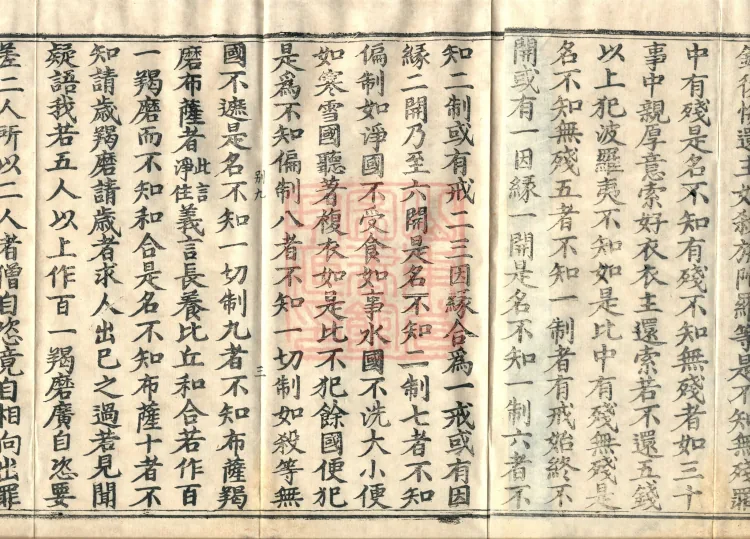 中有殘是名不知有殘不知無殘者如三十
事中親厚意索好衣衣主還索若不還五錢
以上犯波羅夷不知如是比中有殘無殘是
名不知無殘五者不知一制者有戒始終不
開或有一因緣一開是名不知一制六者不
知二制或有戒二三因緣合爲一戒或有因
緣二開乃至六開是名不知二制七者不知
偏制如淨國不受食如事水國不洗大小便
如寒雪國聽著複衣如是比不犯餘國便犯
是爲不知偏制八者不知一切制如殺等無
别九
三
國不遮是名不知一切制九者不知布薩羯
磨布薩者此言淨住義言長養比丘和合若作百
一羯磨而不知和合是名不知布薩十者不
知請歲羯磨請歲者求人出已之過若見聞
疑語我若五人以上作百一羯磨廣自恣要
差二人所以二人者僧自恣竟自相向出罪